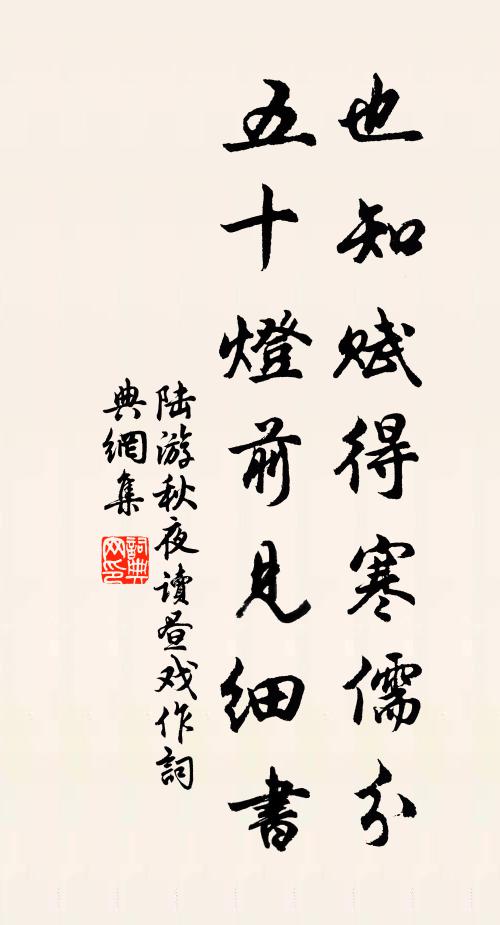 也知赋得寒儒分
五十燈前見細書
陆游秋夜讀昼戏作詞
典網集
詞典网印